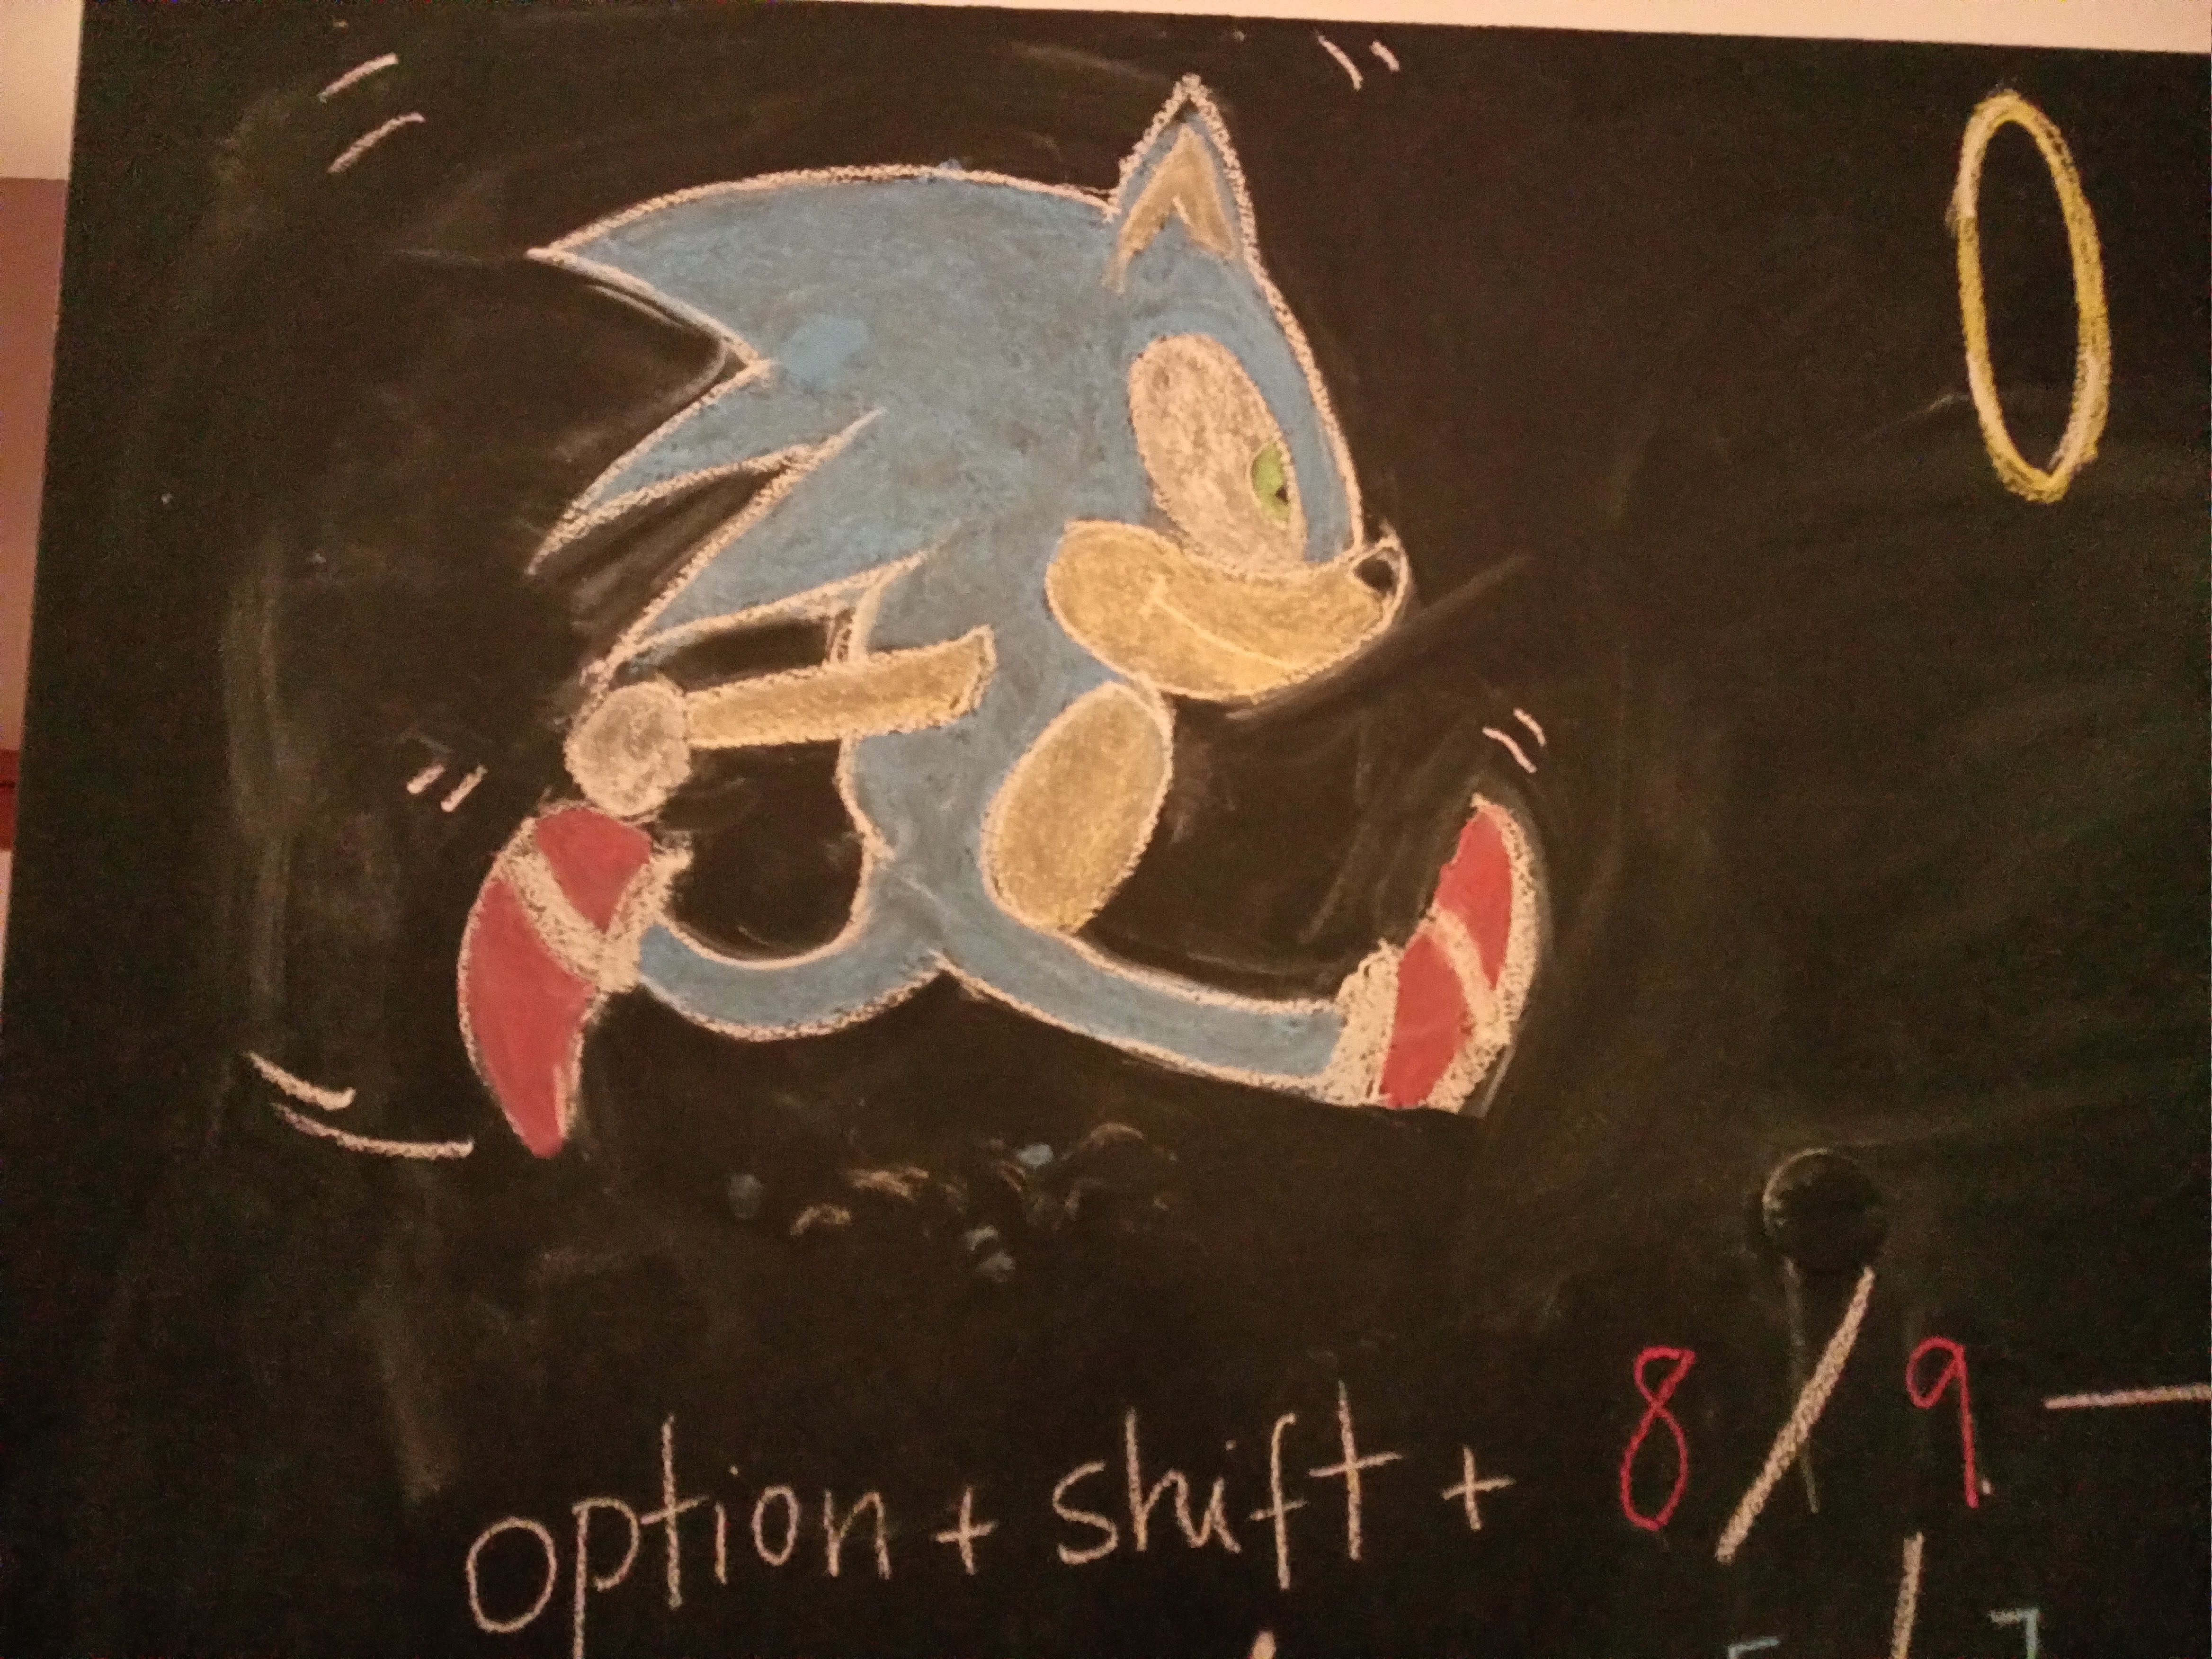 option + shift + 8 / 9 —